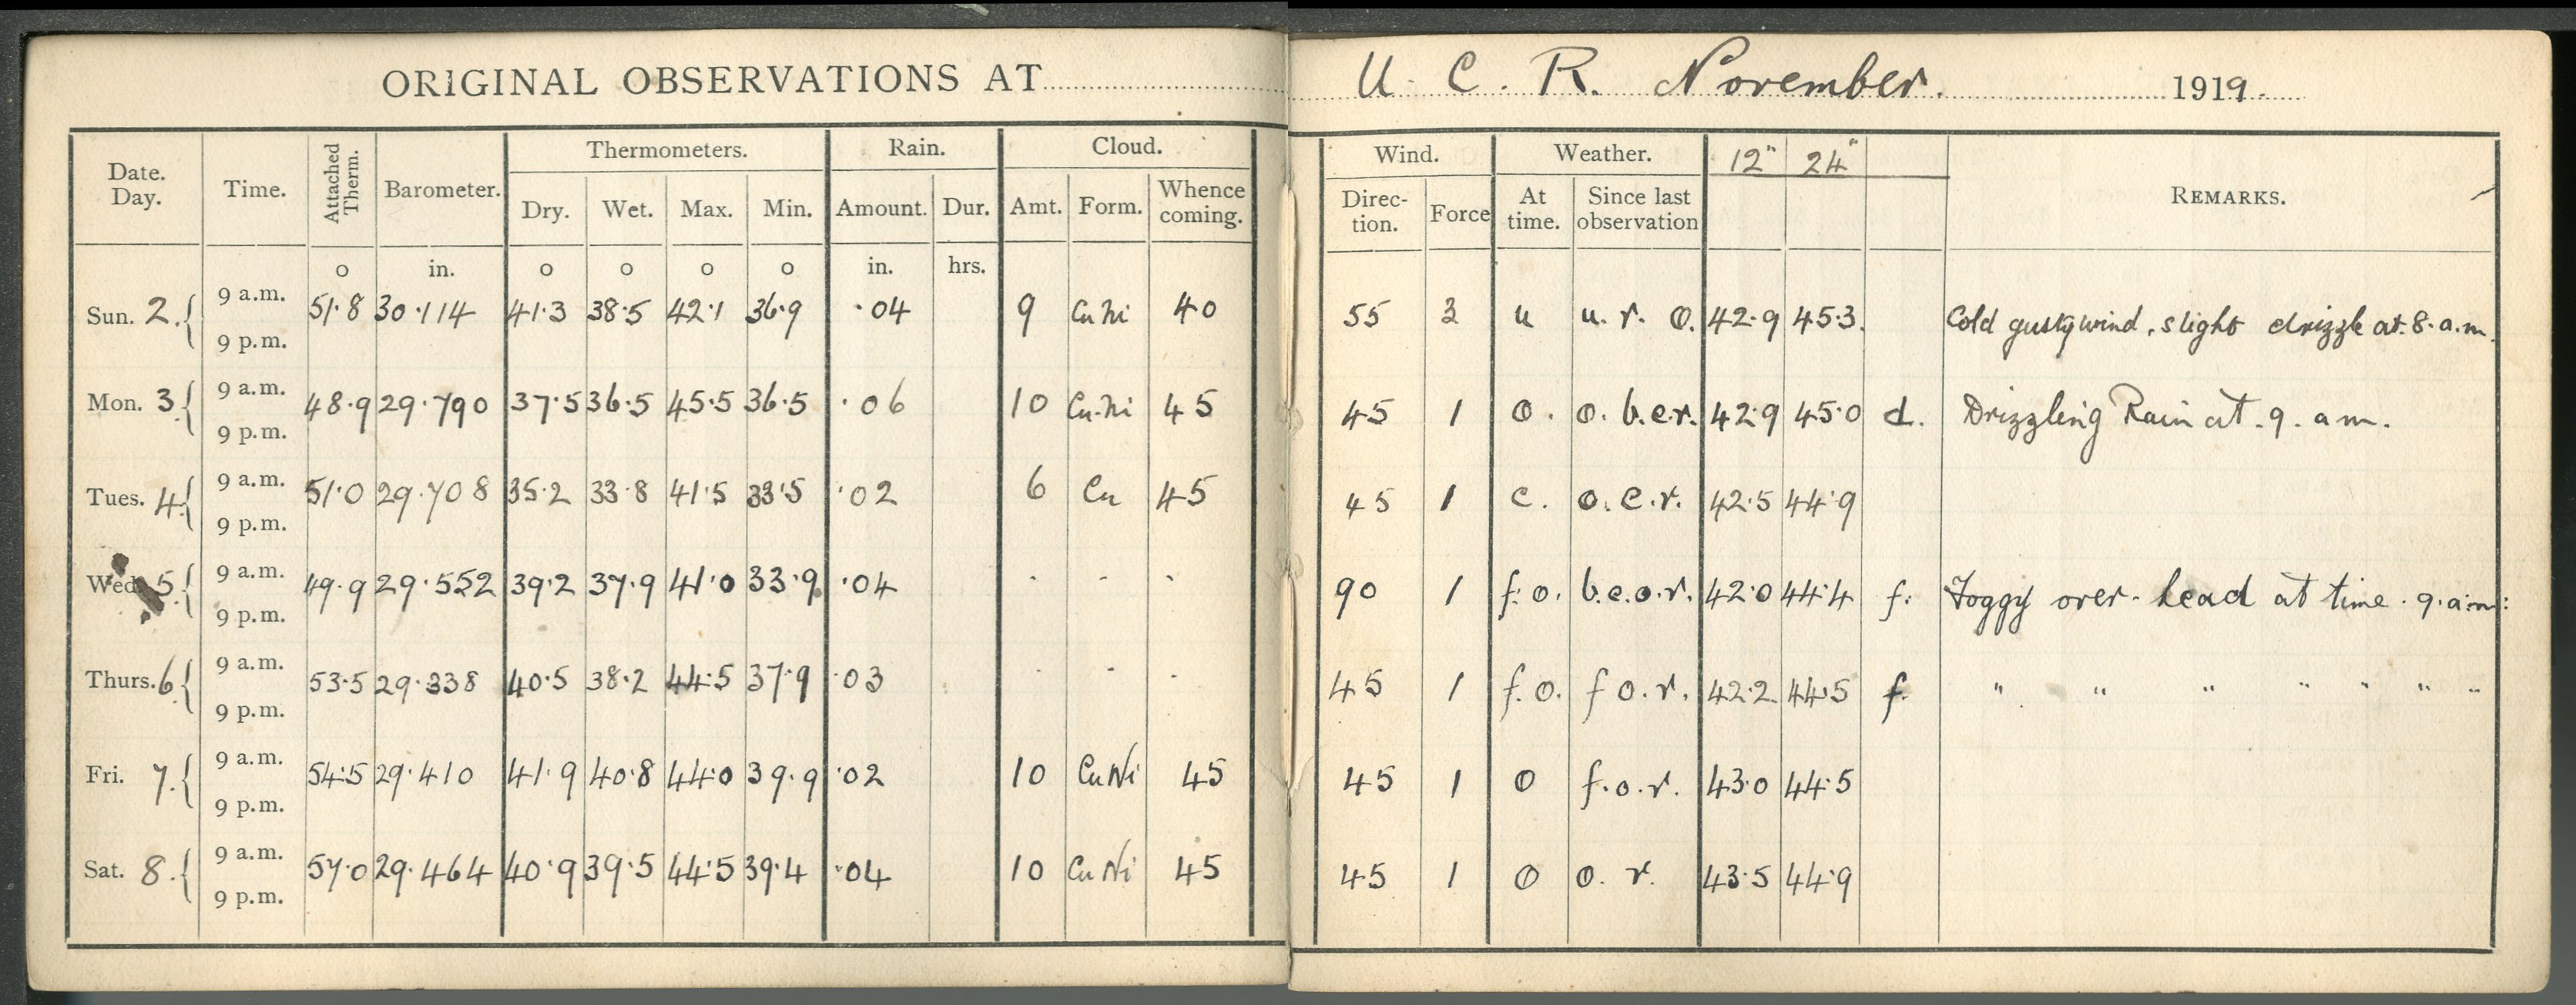 ORIGINAL OBSERVATIONS AT U. C. R. November. 1919.
Date. Day. Time. Attached Therm. Barometer. Thermometers. Rain. Cloud. Wind. Weather. 12" 24" REMARKS.
Dry. Wet. Max. Min. Amount. Dur. Amt. Form. Whence coming. Direc- tion. Force At time. Since last observation
o in. o o o o in. hrs.
Sun. 2. { 9 a.m. 9 p.m. 51.8 30.114 41.3 38.5 42.1 36.9 .04 9 Cu Ni 40 55 3 u u. r. o. 42.9 45.3. Cold gusty wind, slight drizzle at. 8. a.m.
Mon. 3 { 9 a.m. 9 p.m. 48.9 29.790 37.5 36.5 45.5 36.5 .06 10 Cu-Ni 45 45 1 o. o. b.c.r. 42.9 45.0 d. Drizzling Rain at. 9. a m.
Tues. 4 { 9 a.m. 9 p.m. 51.0 29.708 35.2 33.8 41.5 33.5 .02 6 Cu 45 45 1 c. o.c.r. 42.5 44.9
Wed. 5. { 9 a.m. 9 p.m. 49.9 29.552 39.2 37.9 41.0 33.9 .04 - - - 90 1 f. o. b.c.o.r. 42.0 44.4 f. Foggy over-head at time. 9.a.m:
Thurs. 6 { 9 a.m. 9 p.m. 53.5 29.338 40.5 38.2 44.5 37.9 .03 - - - 45 1 f. o. f o. r. 42.2 44.5 f. " " " " " " "
Fri. 7. { 9 a.m. 9 p.m. 54.5 29.410 41.9 40.8 44.0 39.9 .02 10 Cu Ni 45 45 1 o f. o. r. 43.0 44.5
Sat. 8. { 9 a.m. 9 p.m. 57.0 29.464 40.9 39.5 44.5 39.4 .04 10 Cu Ni 45 45 1 o o. r. 43.5 44.9